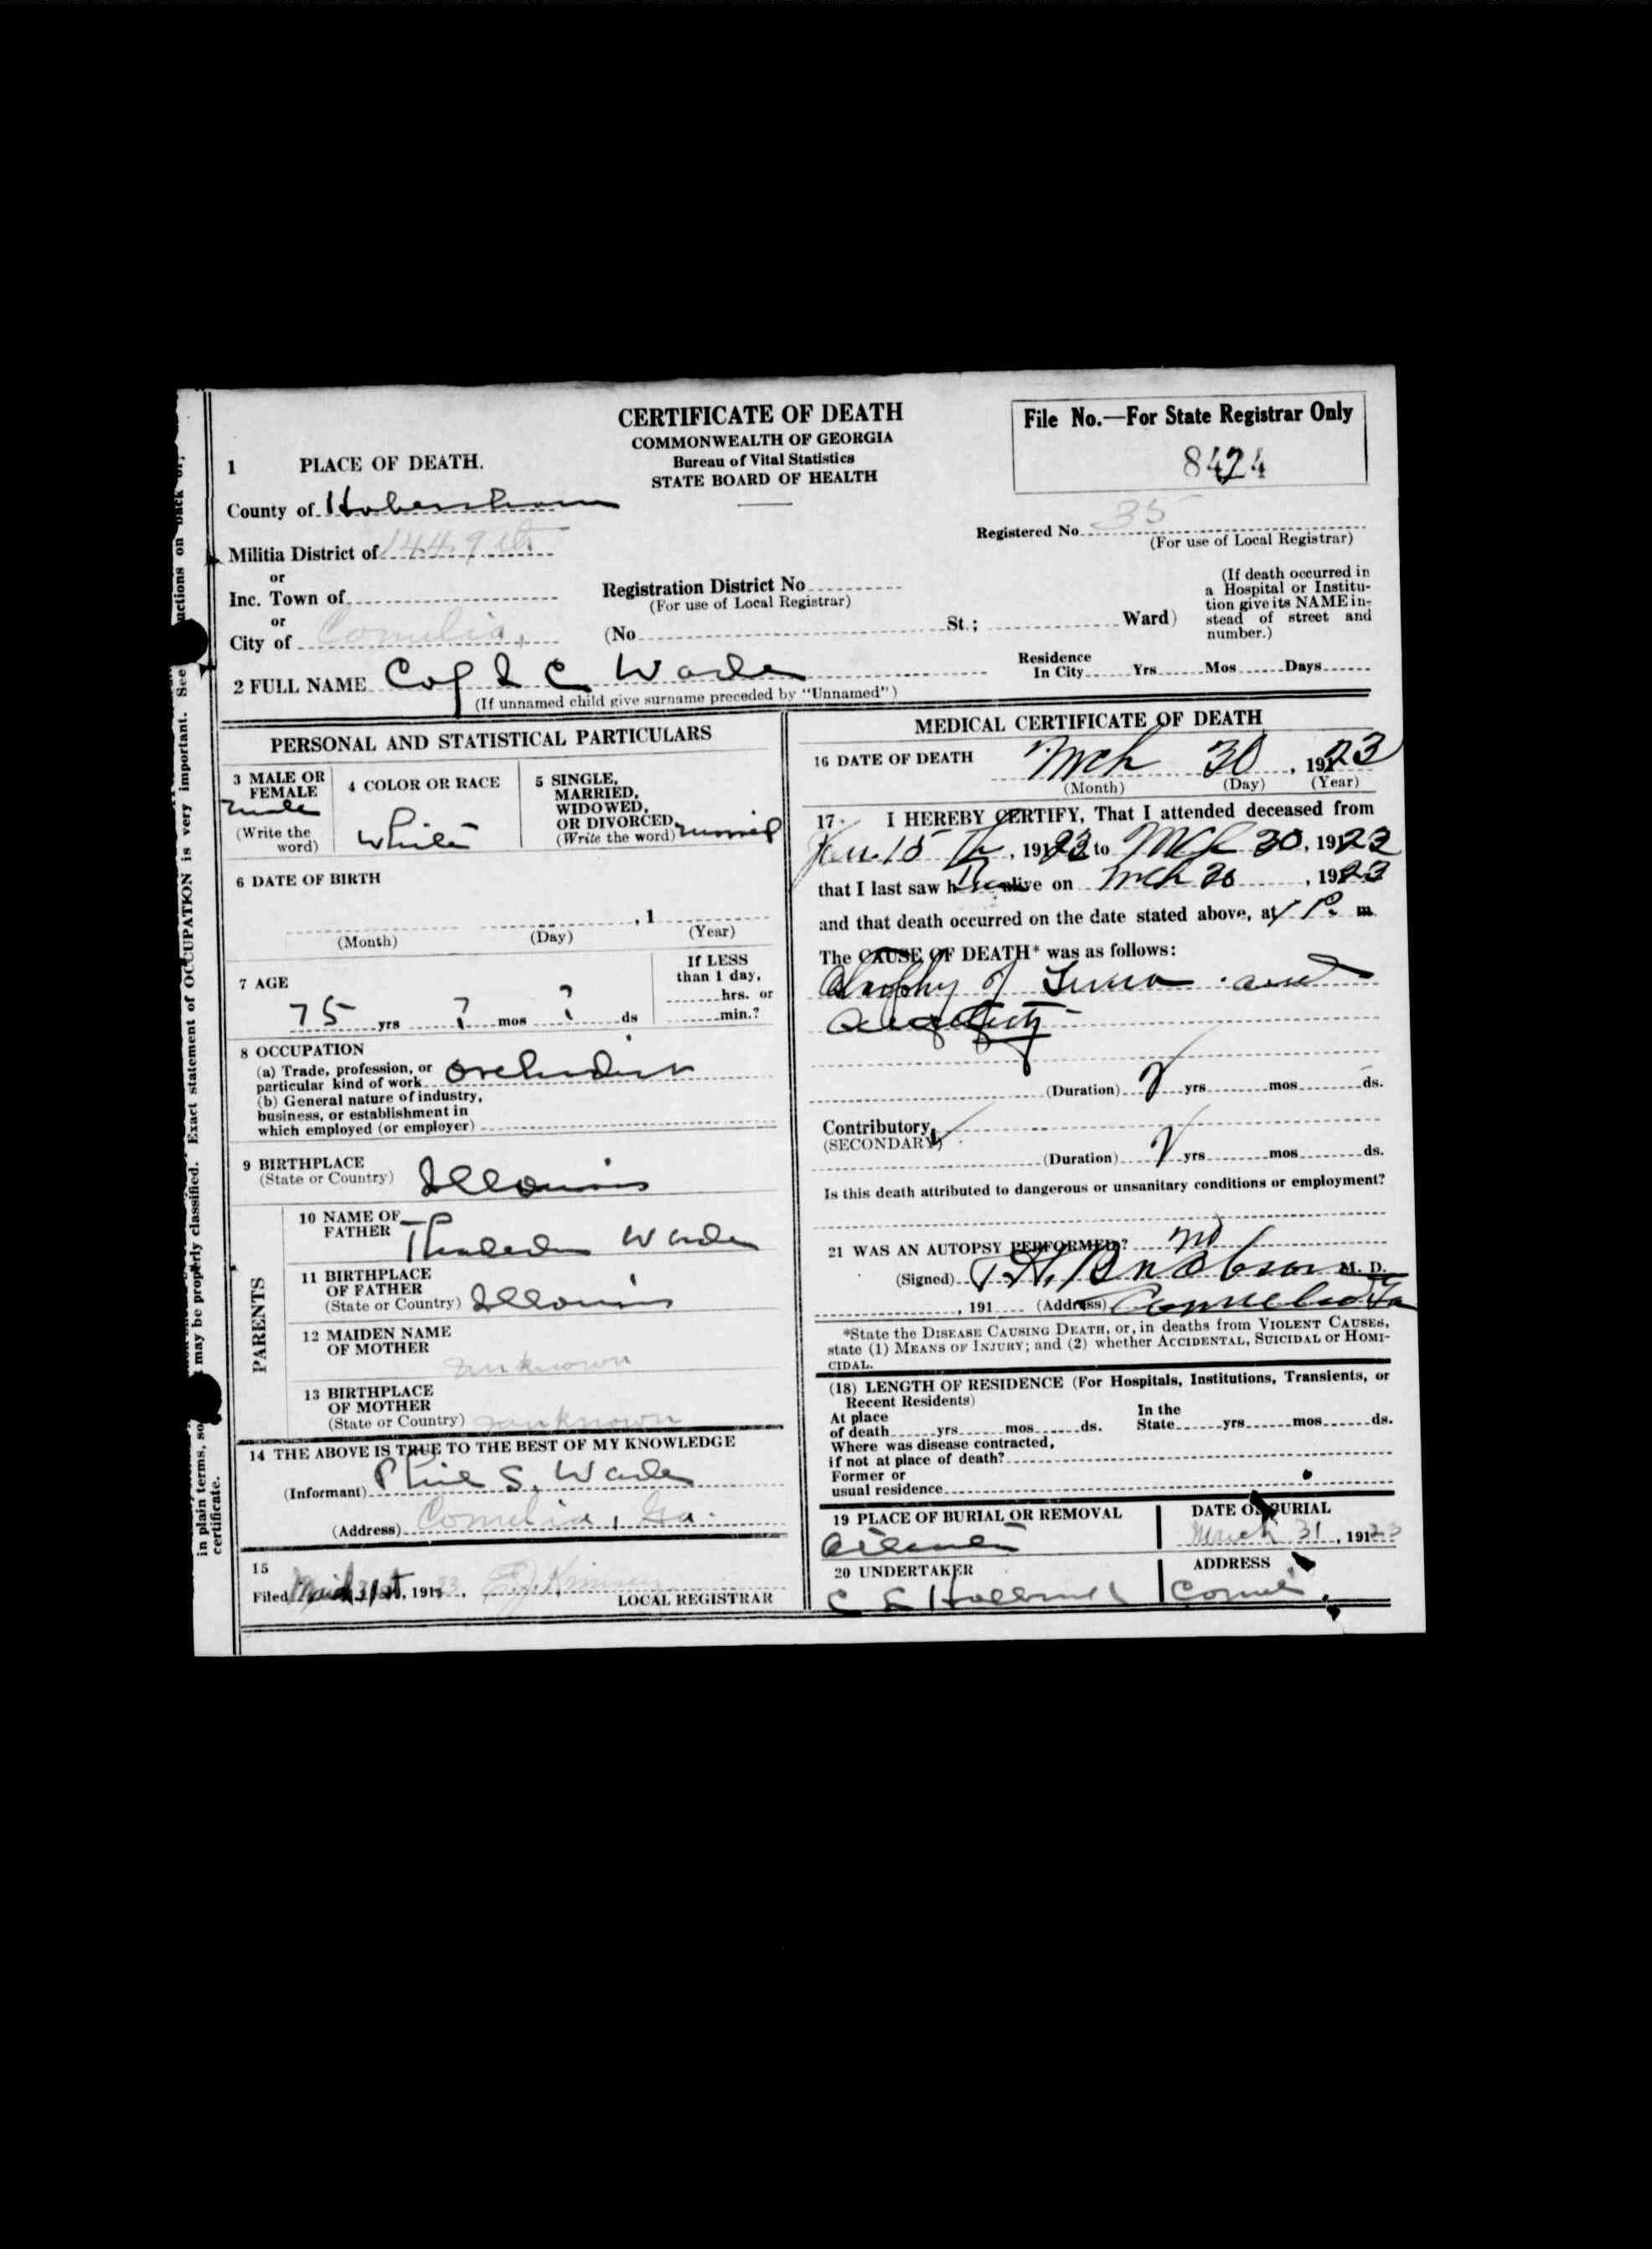 CERTIFICATE OF DEATH
COMMONWEALTH OF GEORGIA
Bureau of Vital Statistics
STATE BOARD OF HEALTH
File No.—For State Registrar Only
8424
1 PLACE OF DEATH.
County of Habersham
Registered No. 35
(For use of Local Registrar)
Militia District of 1449
or
Inc. Town of
Registration District No
(For use of Local Registrar)
or
City of Cornelia,
(No St.; Ward)
(If death occurred in
a Hospital or Institu-
tion give its NAME in-
stead of street and
number.)
2 FULL NAME Capt C Wade
(If unnamed child give surname preceded by "Unnamed")
Residence
In City Yrs Mos Days
PERSONAL AND STATISTICAL PARTICULARS
3 MALE OR
FEMALE
male
(Write the
word)
4 COLOR OR RACE
white
5 SINGLE,
MARRIED,
WIDOWED,
OR DIVORCED
(Write the word) married
6 DATE OF BIRTH
, 1
(Month) (Day) (Year)
7 AGE
75 yrs ? mos ? ds
If LESS
than 1 day,
hrs. or
min.?
8 OCCUPATION
(a) Trade, profession, or
particular kind of work
(b) General nature of industry,
business, or establishment in
which employed (or employer)
9 BIRTHPLACE
(State or Country) Illinois
PARENTS
10 NAME OF
FATHER Wade
11 BIRTHPLACE
OF FATHER
(State or Country) Illinois
12 MAIDEN NAME
OF MOTHER
unknown
13 BIRTHPLACE
OF MOTHER
(State or Country) unknown
14 THE ABOVE IS TRUE TO THE BEST OF MY KNOWLEDGE
(Informant) S. Wade
(Address) Cornelia, Ga.
15
Filed March 31st, 191 23, E.J. Kimsey
LOCAL REGISTRAR
MEDICAL CERTIFICATE OF DEATH
16 DATE OF DEATH Mch 30, 1923
(Month) (Day) (Year)
17. I HEREBY CERTIFY, That I attended deceased from
Jan. 15 th, 1923 to Mch 30, 1923
that I last saw h alive on Mch 30, 1923
and that death occurred on the date stated above, at 1 P. m.
The CAUSE OF DEATH* was as follows:
Atrophy of and
(Duration) yrs mos ds.
Contributory
(SECONDARY)
(Duration) yrs mos ds.
Is this death attributed to dangerous or unsanitary conditions or employment?
21 WAS AN AUTOPSY PERFORMED? no
(Signed) M. D.
, 191 (Address) Cornelia Ga
*State the DISEASE CAUSING DEATH, or, in deaths from VIOLENT CAUSES,
state (1) MEANS OF INJURY; and (2) whether ACCIDENTAL, SUICIDAL or HOMI-
CIDAL.
(18) LENGTH OF RESIDENCE (For Hospitals, Institutions, Transients, or
Recent Residents)
At place
of death yrs mos ds.
In the
State yrs mos ds.
Where was disease contracted,
if not at place of death?
Former or
usual residence
19 PLACE OF BURIAL OR REMOVAL
DATE OF BURIAL
March 31, 1923
20 UNDERTAKER
ADDRESS
in plain terms, so may be properly classified. Exact statement of OCCUPATION is very important. See uctions on back of
certificate.